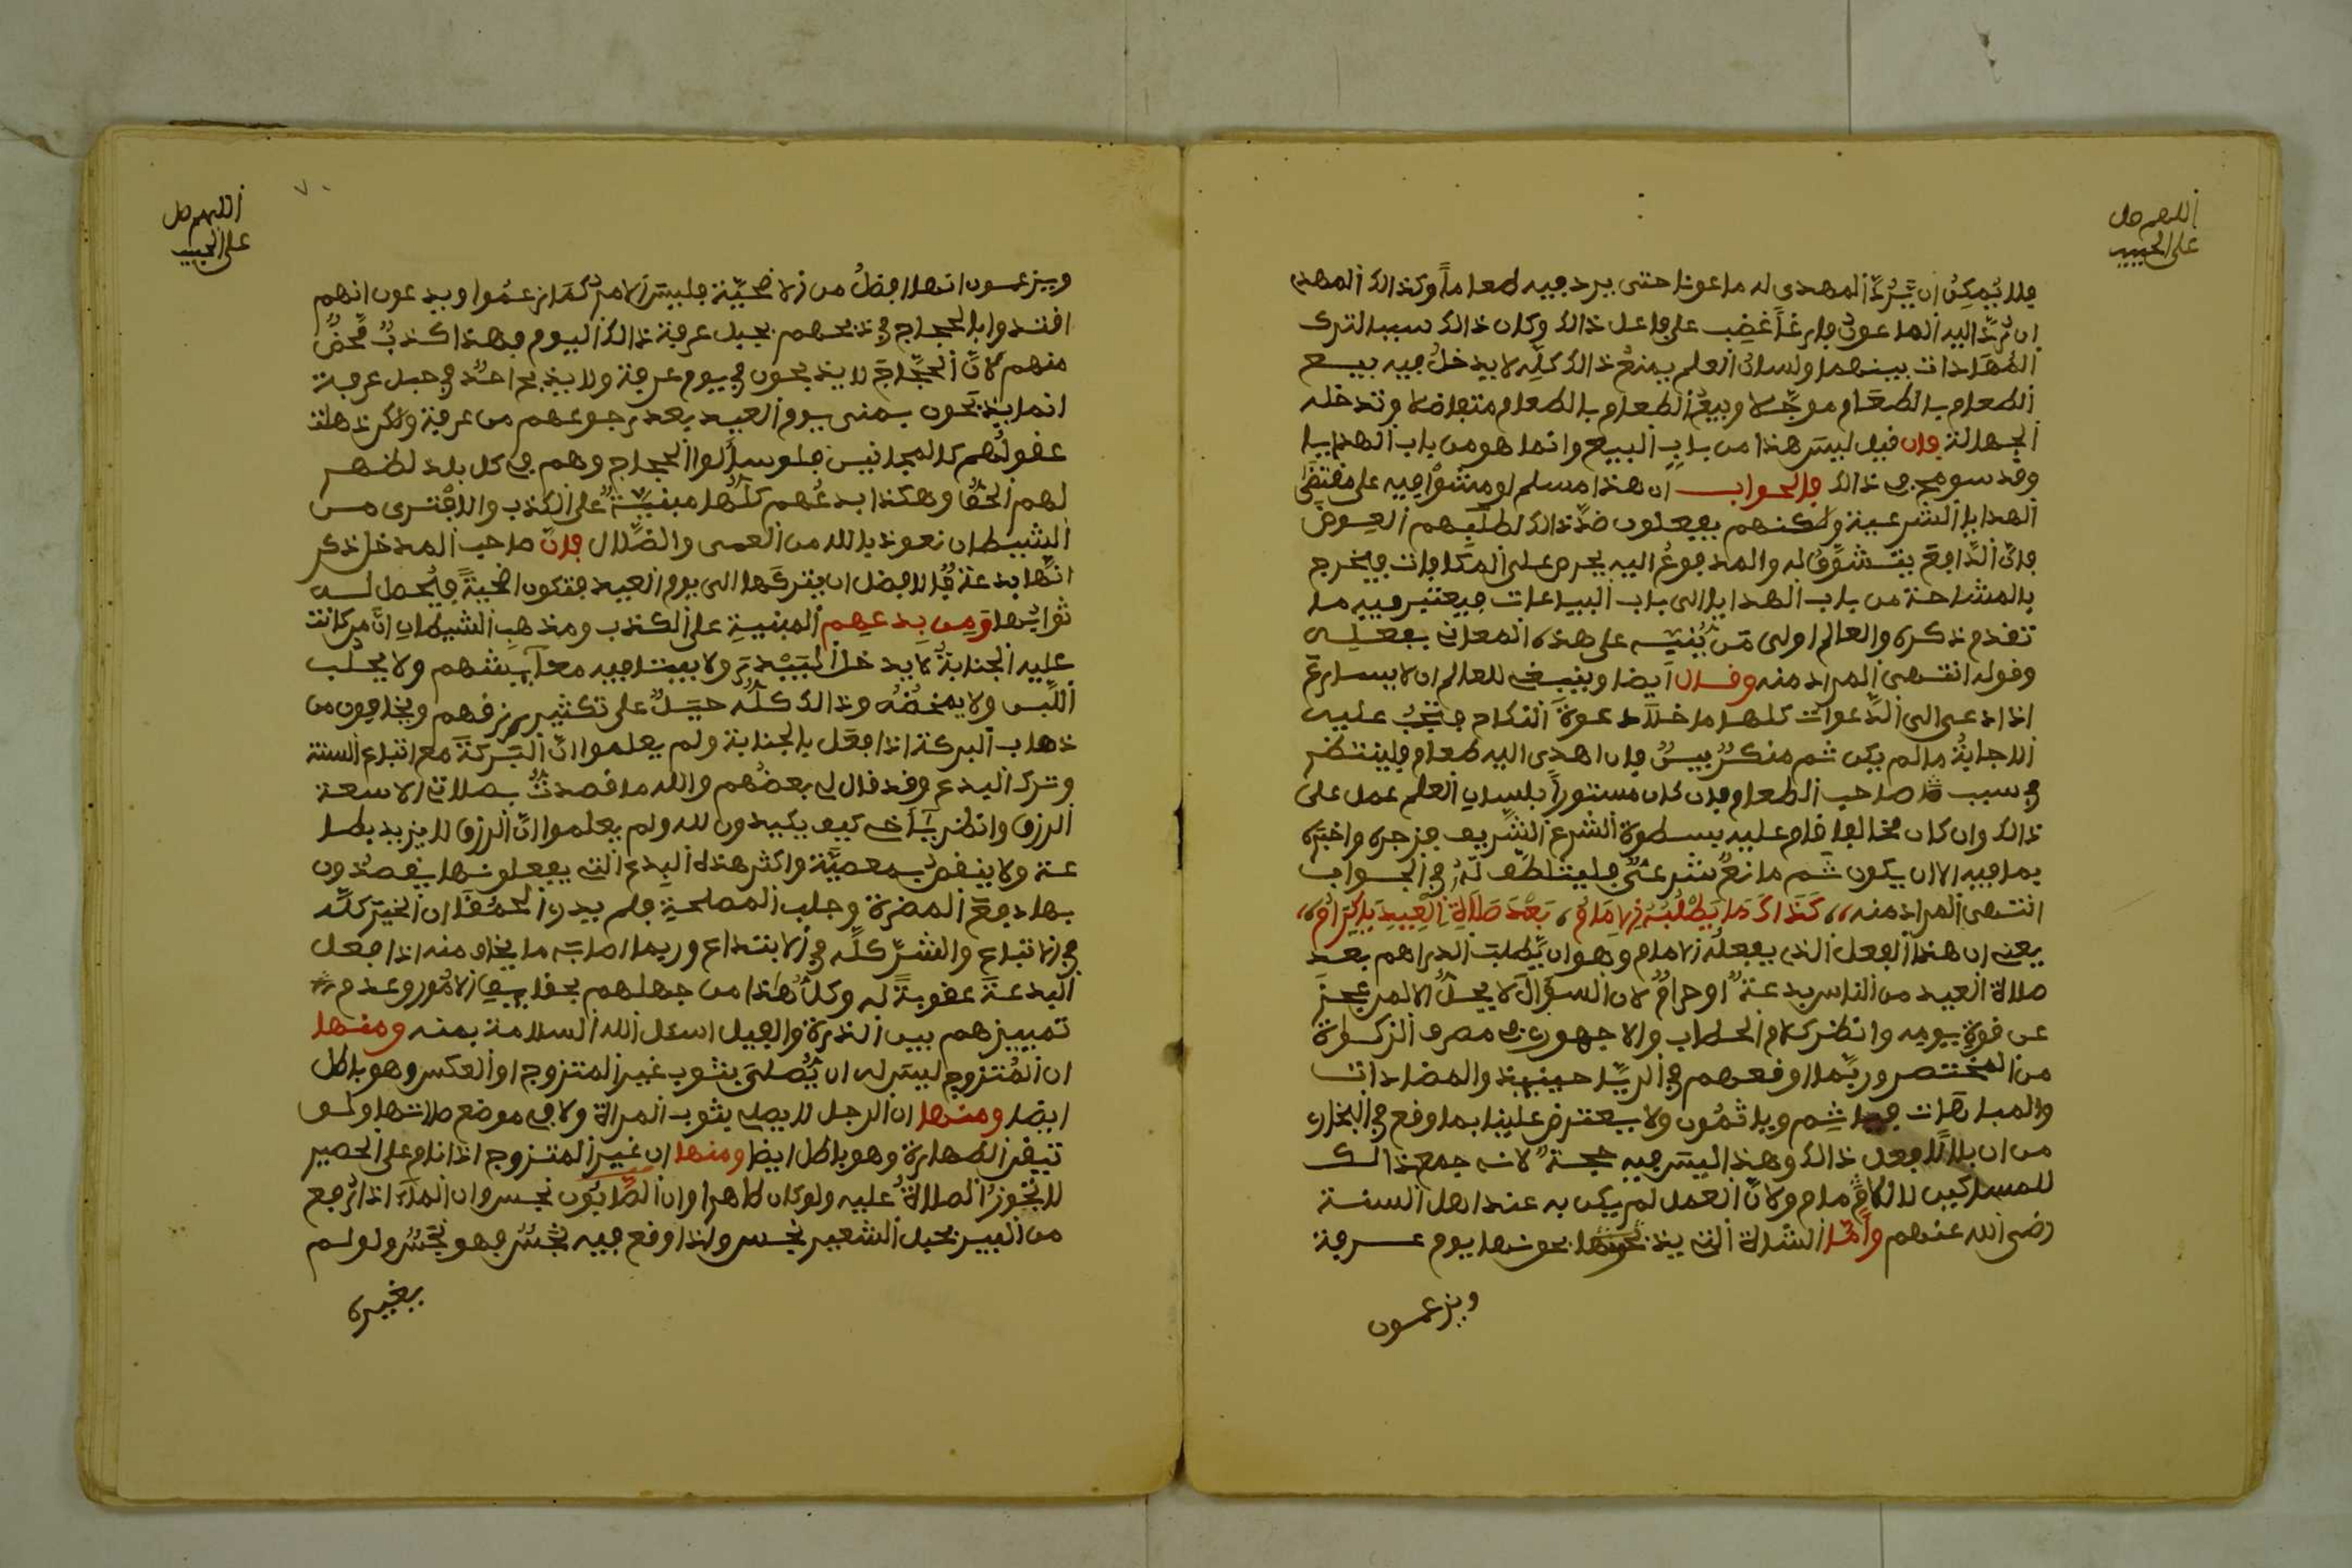 اللهم صل
على الحبيب
فلا يمكن ان يرد المهدى له ماعونا حتى يرد فيه طعاما وكذالك المهدي
ان رد اليه الماعون فارغا غضب على فاعل ذالك وكان ذالك سببا لترك
المهادات بينهما ولسان العلم يمنع ذالك كله لا يدخل فيه بيع
الطعام بالطعام موجلا وبيع الطعام بالطعام متفاضلا وتدخله
الجهالة فان قيل ليس هذا من باب البيع وانما هو من باب الهدايا
وقد سومح في ذالك فالجواب ان هذا مسلم لو مشوا فيه على مقتضى
الهدايا الشرعية ولكنهم يفعلون ضد ذالك لطلبهم العوض
فان الدافع يتشوف له والمدفوع اليه يحرص على المكافات فيخرج
بالمشاحة من باب الهدايا الى باب البياعات فيعتبر فيه ما
تقدم ذكره والعالم اولى من ينبه على هذه المعاني بفعله
وقوله انتهى المراد منه وقال ايضا وينبغي للعالم ان لا يسارع
اذا دعي الى الدعوات كلها ما خلا دعوة النكاح فتجب عليه
الاجابة ما لم يكن ثم منكر بين فان اهدي اليه طعام فلينتظر
في سبب صاحب الطعام فان كان مستورا بلسان العلم عمل على
ذالك وان كان مخالفا قام عليه بسطوة الشرع الشريف فزجره واخبره
بما فيه الا ان يكون ثم مانع شرعي فليتلطف له في الجواب
انتهى المراد منه كذاك ما يطلبه الامام بعد صلاة العيد يا كرام
يعني ان هذا الفعل الذي يفعله الامام وهو ان يطلب الدراهم بعد
صلاة العيد من الناس بدعة او حرام لان السؤال لا يحل الا لمن عجز
عن قوة يومه وانظر كلام الحطاب والاجهوري في مصرف الزكواة
من المختصر وربما اوقعهم في الريا حينئذ والمضادات
والمباهات فيا شم ويا ثمون ولا يعترض علينا بما وقع في البخاري
من ان بلالا فعل ذالك وهذا ليس فيه حجة لانه جمع ذالك
للمساكين لا للامام ولان العمل لم يكن به عند اهل السنة
رضي الله عنهم واما الشاة التي يذبحونها يوم عرفة
ويزعمون
اللهم صل
على الحبيب
٧٠
ويزعمون انها افضل من الاضحية فليس الامر كما زعموا ويدعون انهم
اقتدوا بالحجاج في ذبحهم بجبل عرفة ذالك اليوم فهذا كذب محض
منهم لان الحجاج لا يذبحون في يوم عرفة ولا يذبح احد في جبل عرفة
انما يذبحون بمنى يوم العيد بعد رجوعهم من عرفة ولكن ذهلت
عقولهم كالمجانين فلو سالوا الحجاج وهم في كل بلد لظهر
لهم الحق وهكذا بدعهم كلها مبنية على الكذب والافترى من
الشيطان نعوذ بالله من العمى والضلال فان صاحب المدخل ذكر
انها بدعة قال الافضل ان يتركها الى يوم العيد فتكون اضحية فيحصل له
ثوابها ومن بدعهم المبنية على الكذب ومذهب الشيطان ان من كانت
عليه الجنابة لا يدخل البيدر ولا يبيت فيه مع ابيشهم ولا يحلب
اللبن ولا يمخضه وذالك كله حيل على تكثير رزقهم ويخافون من
ذهاب البركة اذا فعل بالجنابة ولم يعلموا ان البركة مع اتباع السنة
وترك البدع وقد قال لي بعضهم والله ما قصدت بصلاتي الا سعة
الرزق وانظر يا اخي كيف يكيدون لله ولم يعلموا ان الرزق لا يزيد بطا
عة ولا ينقص بمعصية واكثر هذه البدع التي يفعلونها يقصدون
بها دفع المضرة وجلب المصلحة فلم يدر الحمقا ان الخير كله
في الاتباع والشر كله في الابتداع وربما اصابه ما يخاف منه اذا فعل
البدعة عقوبة له وكل هذا من جهلهم بحقايق الامور وعدم
تمييزهم بين الذرة والفيل اسئل الله السلامة بمنه ومنها
ان المتزوج ليس له ان يصلي بثوب غير المتزوج او العكس وهو باطل
ايضا ومنها ان الرجل لا يصلي بثوب المراة ولا في موضع صلاتها ولو
تيقن الطهارة وهو باطل ايضا ومنها ان غير المتزوج اذا نام على الحصير
لا تجوز الصلاة عليه ولو كان طاهرا وان الصابون نجس وان الماء اذا رفع
من البير بحبل الشعير نجس واذا وقع فيه نجس فهو نجس ولو لم
يغيره